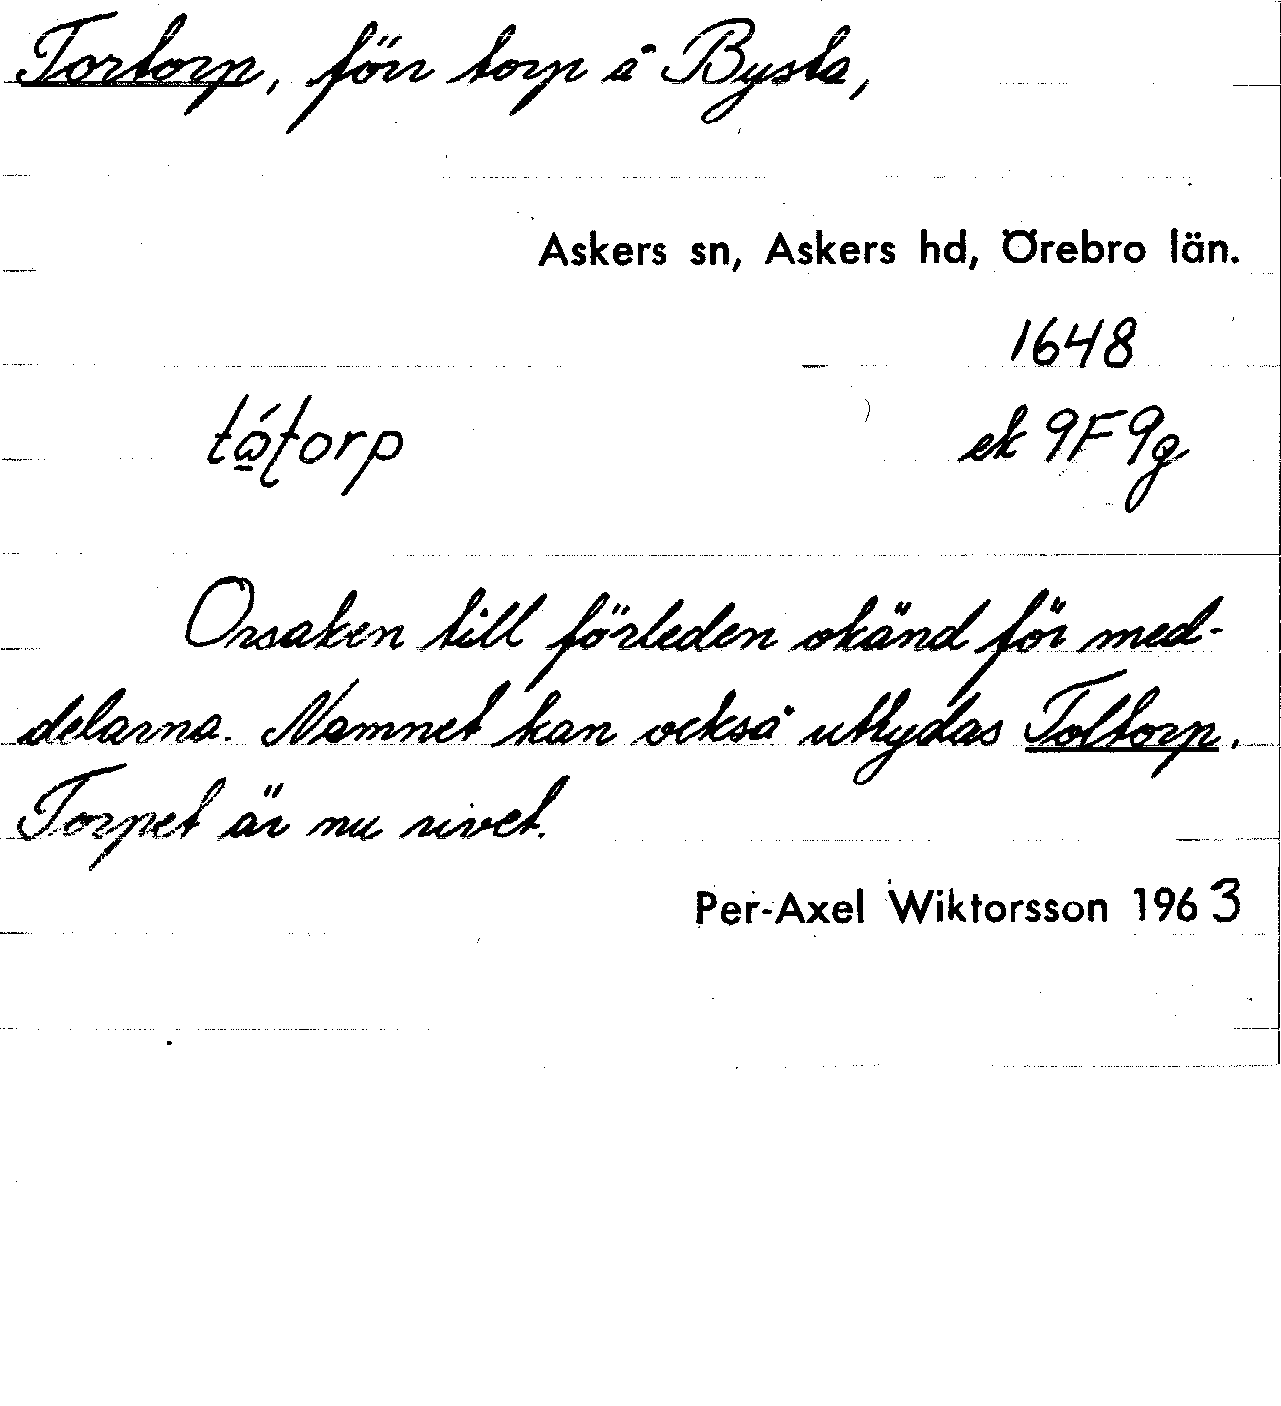 Tortorp, förr torp å Bysta,
Askers sn, Askers hd, Örebro län.
1648
ek 9F9g
Orsaken till förleden okänd för med-
delarna. Namnet kan också uttydas Toltorp.
Torpet är nu rivet.
Per-Axel Wiktorsson 1963